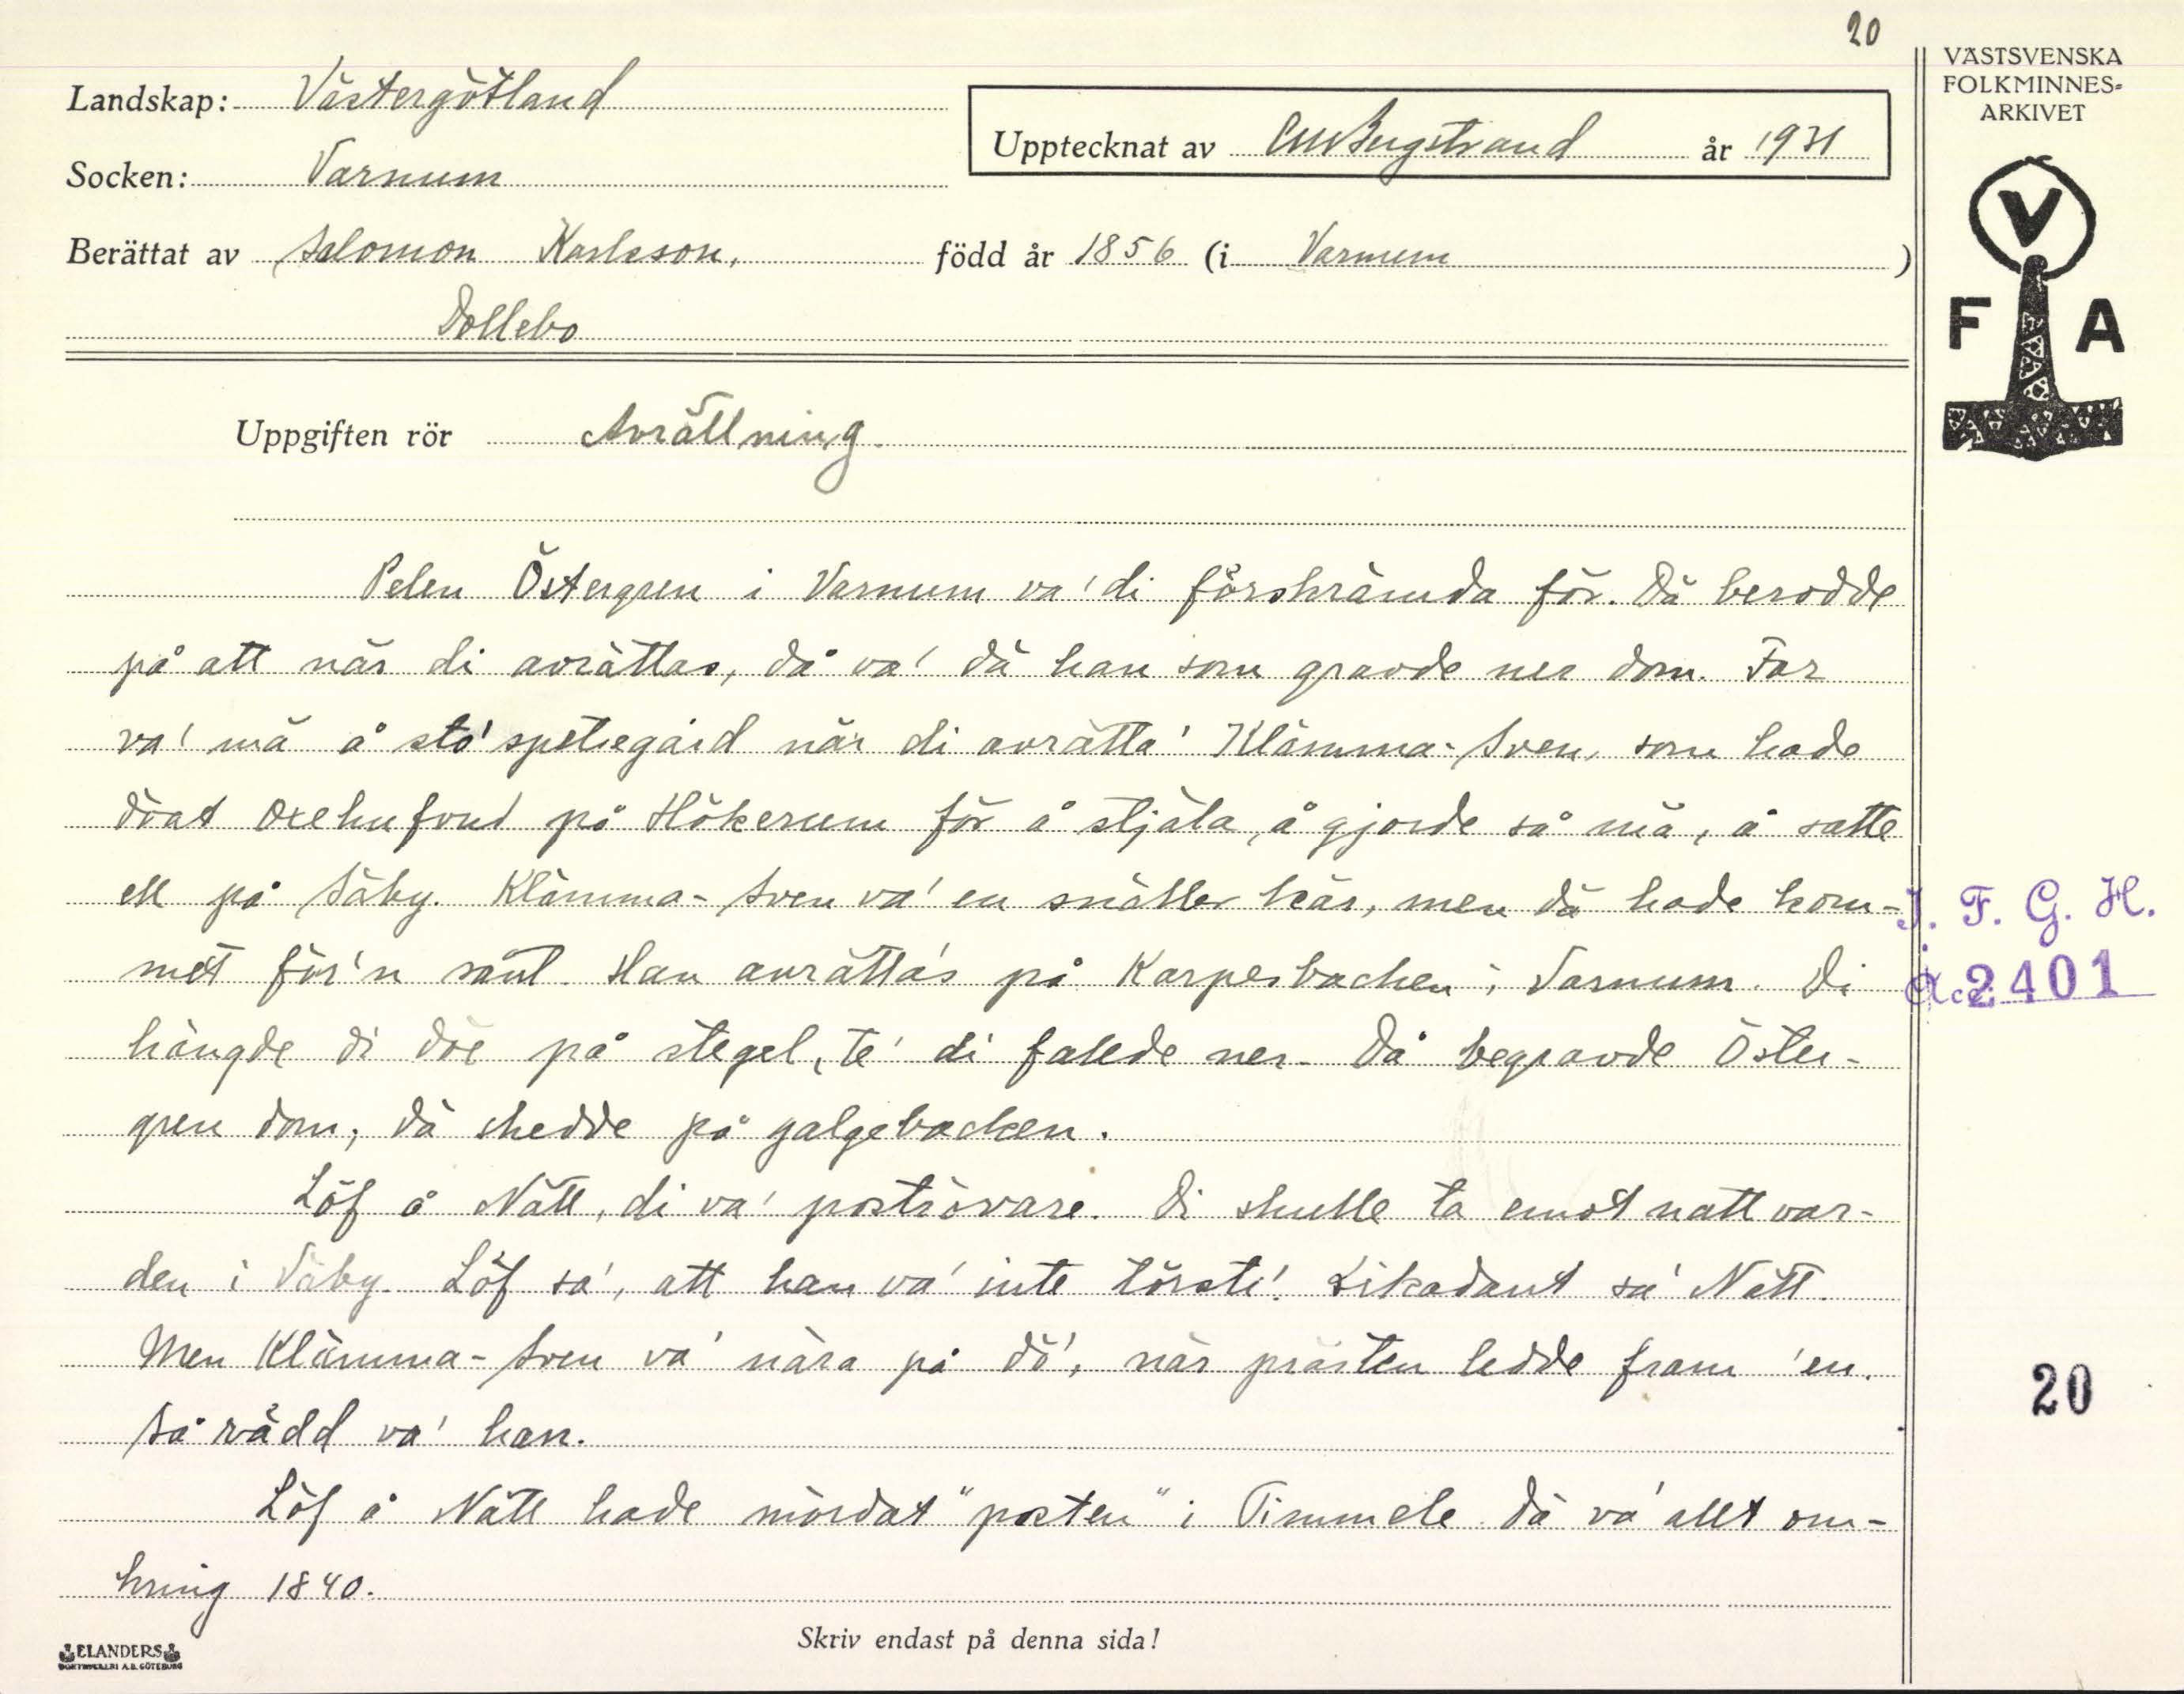 20
VÄSTSVENSKA
FOLKMINNES-
ARKIVET
Landskap: Västergötland
Upptecknat av CM Bergstrand år 1931
Socken: Varnum
Berättat av Salomon Karlsson, född år 1856 (i Varnum)
Dollebo
V
F A
Uppgiften rör Avrättning.
Pelen Östergren i Varnum va' di förskrämda för. Dä berodde
på att när di avrättas, då va' dä han som gravde ner dom. Far
va' mä å sto' spetsegård när di avrätta' Klämma-Sven, som hade
dräat Oxehufvud på Hökerum för å stjäla, å gjorde så mä, å satte
ell på Säby. Klämma-Sven va' en snäller kär, men dä hade kom-
met för'n sånt. Han avrätta's på Karpesbacken i Varnum. Di
hängde di döe på stegel, te' di fallde ner. Då begravde Öster-
gren dom, dä skedde på galgebacken.
Löf å Nätt, di va' poströvare. Di skulle ta emot nattvar-
den i Väby. Löf sa', att han va' inte törsti'. Likadant sa' Nätt.
Men Klämma-Sven va' nära på dö', när prästen ledde fram 'en.
Så rädd va' han.
Löf å Nätt hade mördat "posten" i Timmele. Dä va' allt om-
kring 1840.
I. F. G. H.
Acc. 2401
20
Skriv endast på denna sida!
ELANDERS
BOKTRYCKERI A.B. GÖTEBORG